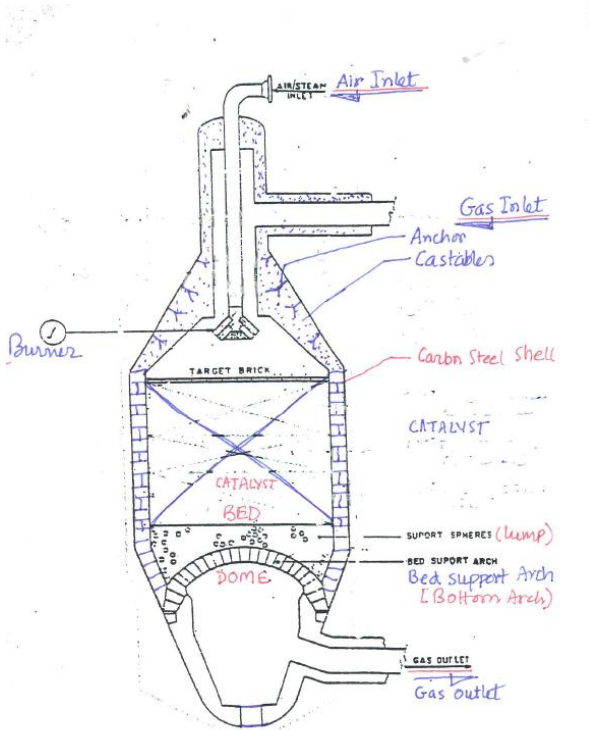 AIR/STEAM
INLET
Air Inlet
Gas Inlet
Anchor
Castables
Burner
TARGET BRICK
Carbon Steel Shell
CATALYST
CATALYST
BED
SUPORT SPHERES (Lump)
BED SUPORT ARCH
Bed Support Arch
[Bottom Arch)
DOME
GAS OUTLET
Gas outlet